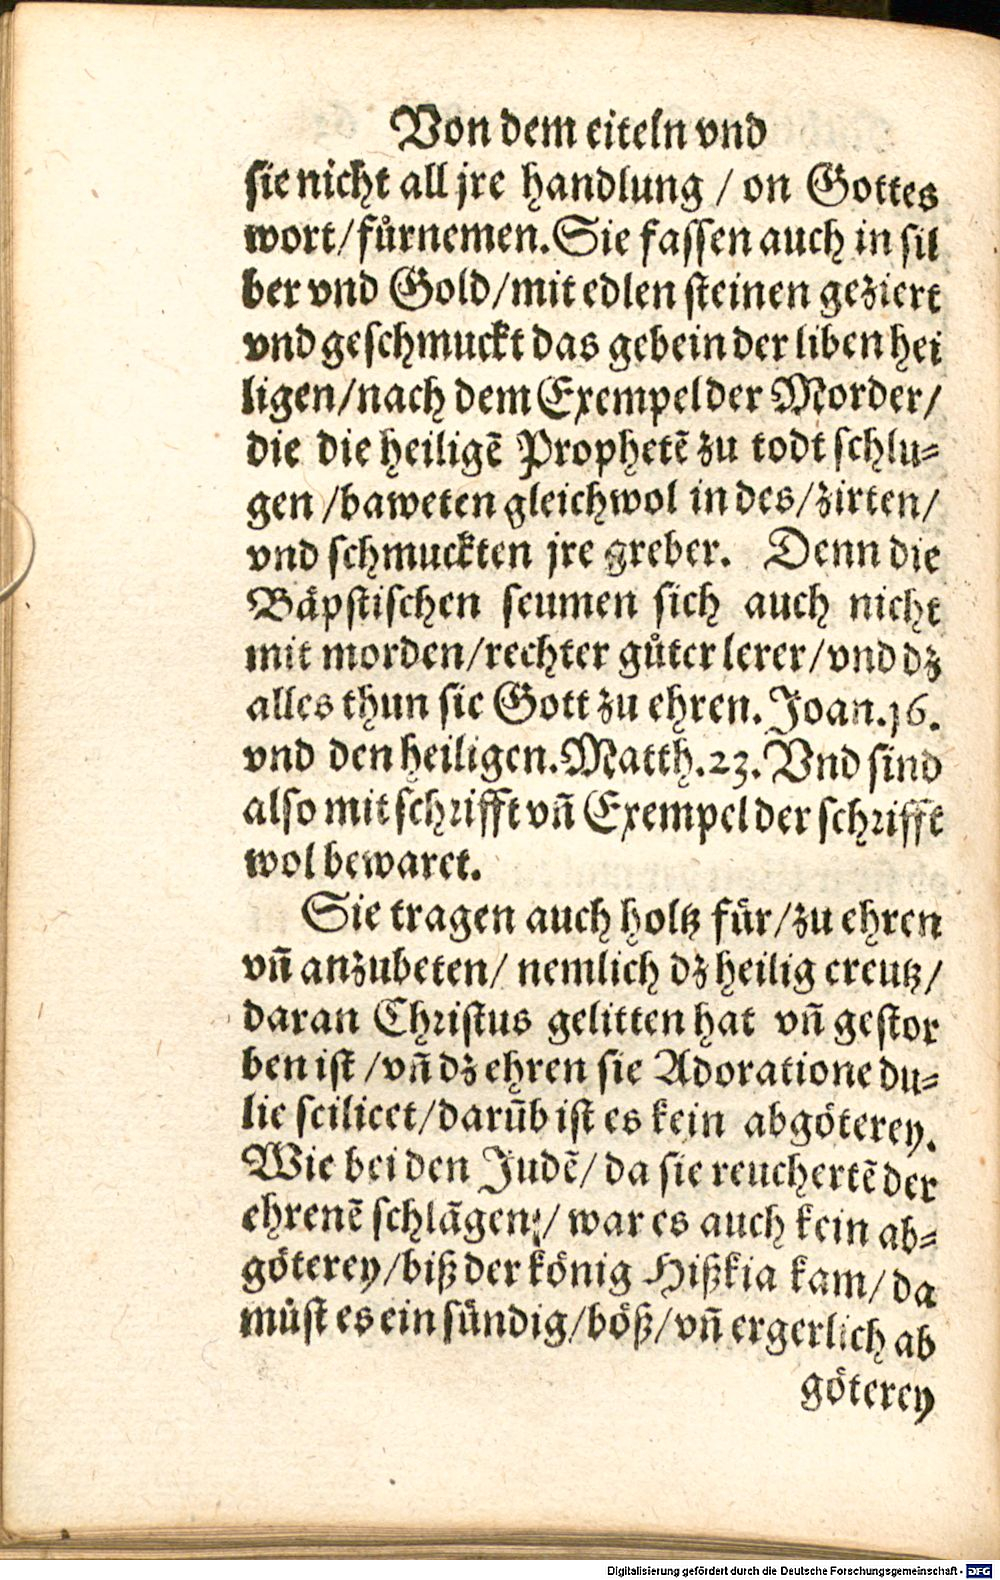 Von dem eiteln vnd
sie nicht all jre handlung / on Gottes
wort/fuͤrnemen. Sie fassen auch in sil
ber vnd Gold/mit edlen steinen geziert
vnd geschmuckt das gebein der liben hei
ligen/nach dem Exempel der Morder/
die die heiligẽ Prophetẽ zu todt schlu⸗
gen /baweten gleichwol in des/zirten/
vnd schmuckten jre greber. Denn die
Baͤpstischen seumen sich auch nicht
mit morden/rechter guͤter lerer/vnd dz
alles thun sie Gott zu ehren. Joan.16.
vnd den heiligen. Matth.23. Vnd sind
also mit schrifft vñ Exempel der schrifft
wol bewaret.
Sie tragen auch holtz fuͤr/zu ehren
vñ anzubeten/ nemlich dz heilig creutz/
daran Christus gelitten hat vñ gestor
ben ist /vñ dz ehren sie Adoratione du⸗
lie scilicet/darũb ist es kein abgoͤterey.
Wie bei den Judẽ/ da sie reuchertẽ der
ehrenẽ schlãgen:/ war es auch kein ab⸗
goͤterey/biß der koͤnig Hißkia kam/ da
muͤst es ein suͤndig/boͤß/vñ ergerlich ab
goͤterey
Digitalisierung gefördert durch die Deutsche Forschungsgemeinschaft - DFG